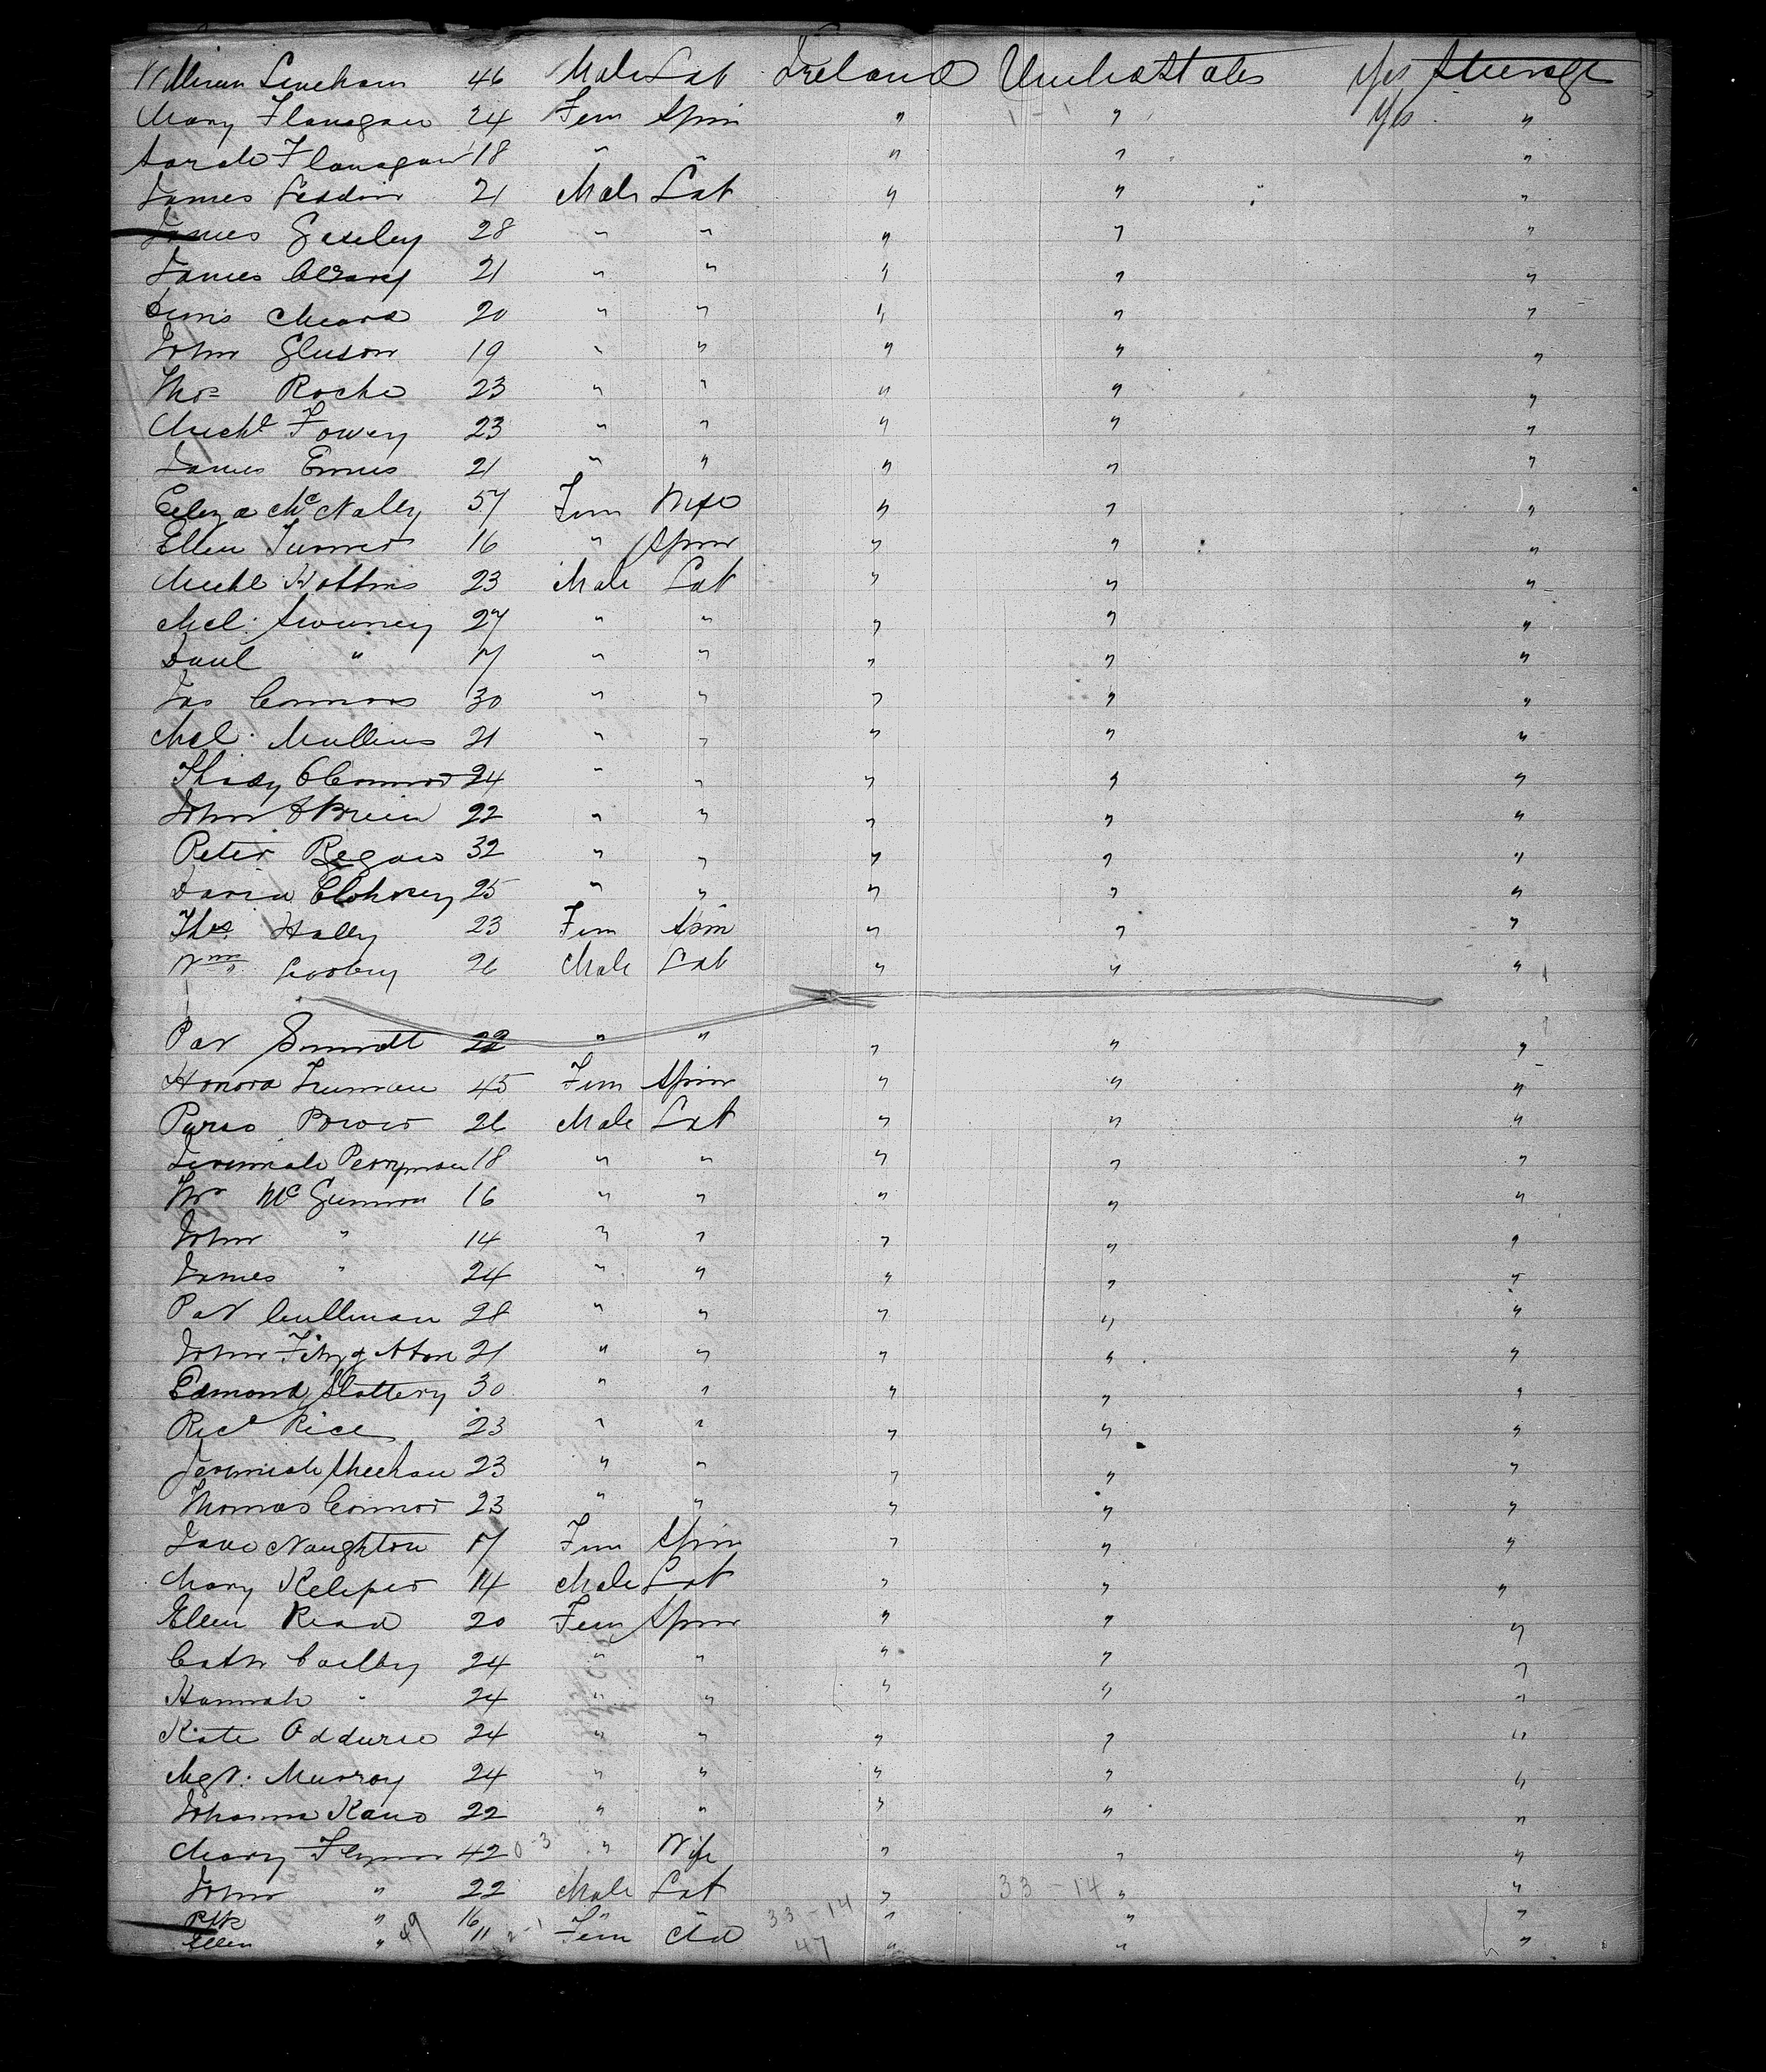 William Linehan 46 Male Lab Ireland United States Yes Steerage
Mary Flanagan 24 Fem Spin " " Yes "
Sarah Flanagan 18 " " " " "
James 21 Male Lab " " "
James 28 " " " " "
James 21 " " " " "
Denis Meara 20 " " " " "
John Gleeson 19 " " " " "
Thos Roche 23 " " " " "
Michl 23 " " " " "
James Ennis 21 " " " " "
Eliza McNally 57 Fem Wife " " "
Ellen Turner 16 " Spin " " "
Michl 23 Male Lab " " "
Ml. Sweeney 27 " " " " "
Danl " 17 " " " " "
Jas Connors 30 " " " " "
Ml. Mullins 21 " " " " "
Thady OConnor 24 " " " " "
John OBrien 22 " " " " "
Peter Regan 32 " " " " "
David Clohosey 25 " " " " "
Thos. Hally 23 Fem Spin " " "
Wm 26 Male Lab " " "
Pat 22 " " " " "
Honora 45 Fem Spin " " "
Pierse Power 26 Male Lab " " "
Jeremiah Perryman 18 " " " " "
Thos McGunnon 16 " " " " "
John " 14 " " " " "
James " 24 " " " " "
Pat Cullinan 28 " " " " "
John 21 " " " " "
Edmond Slattery 30 " " " " "
Ricd Rice 23 " " " " "
Jeremiah Sheehan 23 " " " " "
Thomas Connor 23 " " " " "
Jane Naughton 17 Fem Spin " " "
Mary 14 Male Lab " " "
Ellen Read 20 Fem Spin " " "
Cath 24 " " " " "
Hannah " 24 " " " " "
Kate 24 " " " " "
Mgt. Murray 24 " " " " "
Johanna Kane 22 " " " " "
Mary Flynn 42 0-3 " Wife " " "
John " 22 Male Lab " 33-14 " "
Patk " 16 " " 33-14 " " "
Ellen " 49 11 2-1 Fem Chd 47 " " "